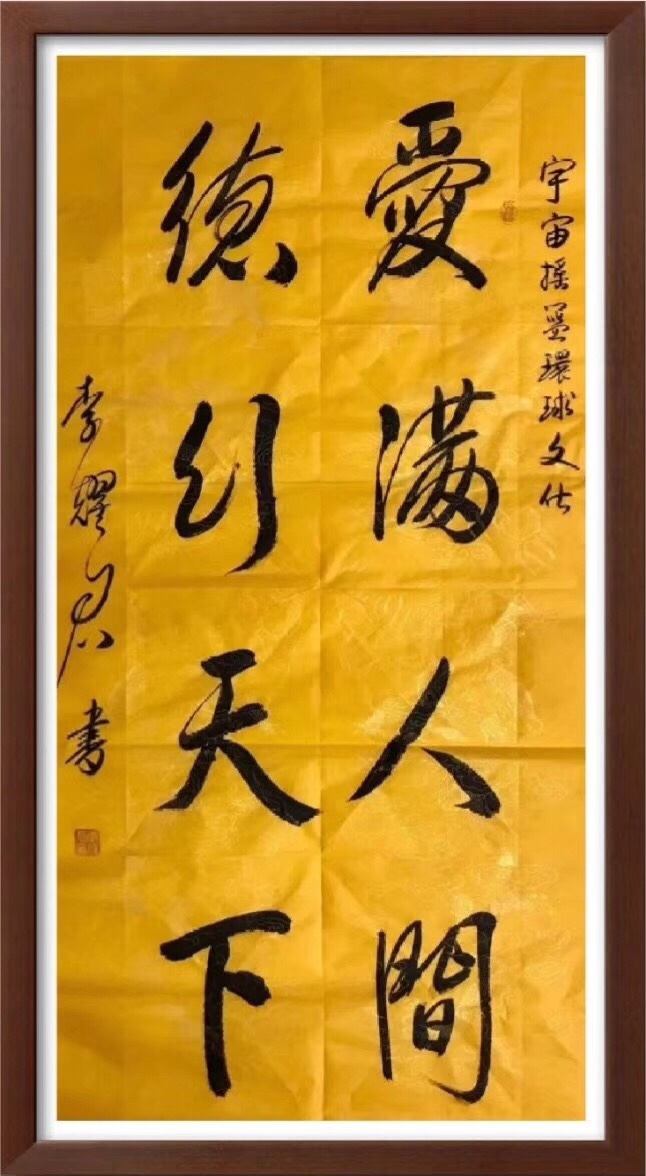 宇宙摇環球文化
愛满人間
德行天下
李耀書